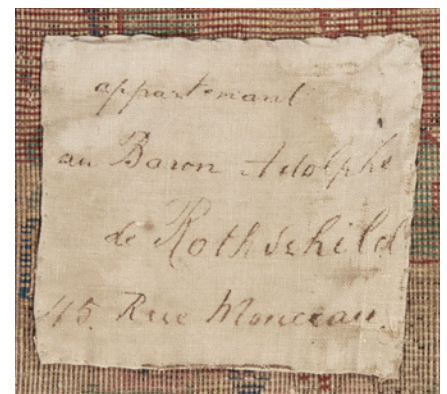 appartenant
au Baron Adolphe
de Rothschild
45 Rue Monceau